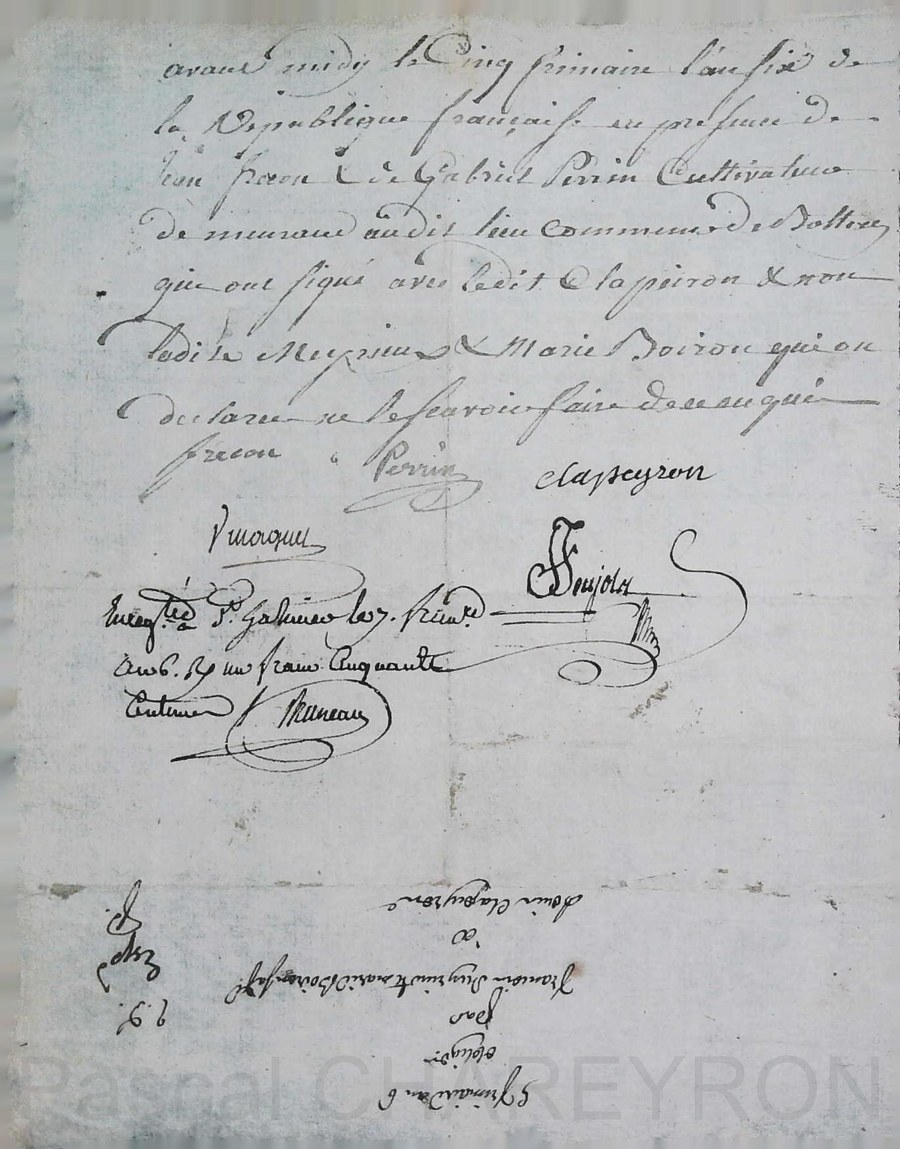 avant midy le Cinq frimaire l'an six de
la Republique française en presence de
Jean frecon & de Gabriel Perrin Cultivateurs
demeurand audit lieu commune de Bottere
qui ont signé avec ledit Clapeiron & non
ladite Meyrieux & Marie Boiron qui on
declaree ne le scavoir faire de ce enquis
frecon Perrin clapeyron
Enregtré a St. Galmier le 7. frimre
an 6. Rç un franc Cinquante
Centimes Bruneau
5 frimaire an 6
obligon
par
françois Meyrieux & marie Boiron sa fe
à
Louis Clapeyron
Expd
Pascal CHAREYRON